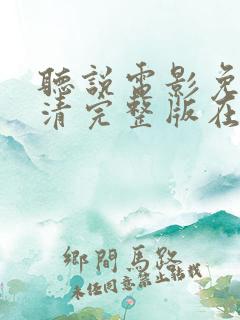 聽說電影免
清完整版在
鄉間馬路
未任同意禁止轉載